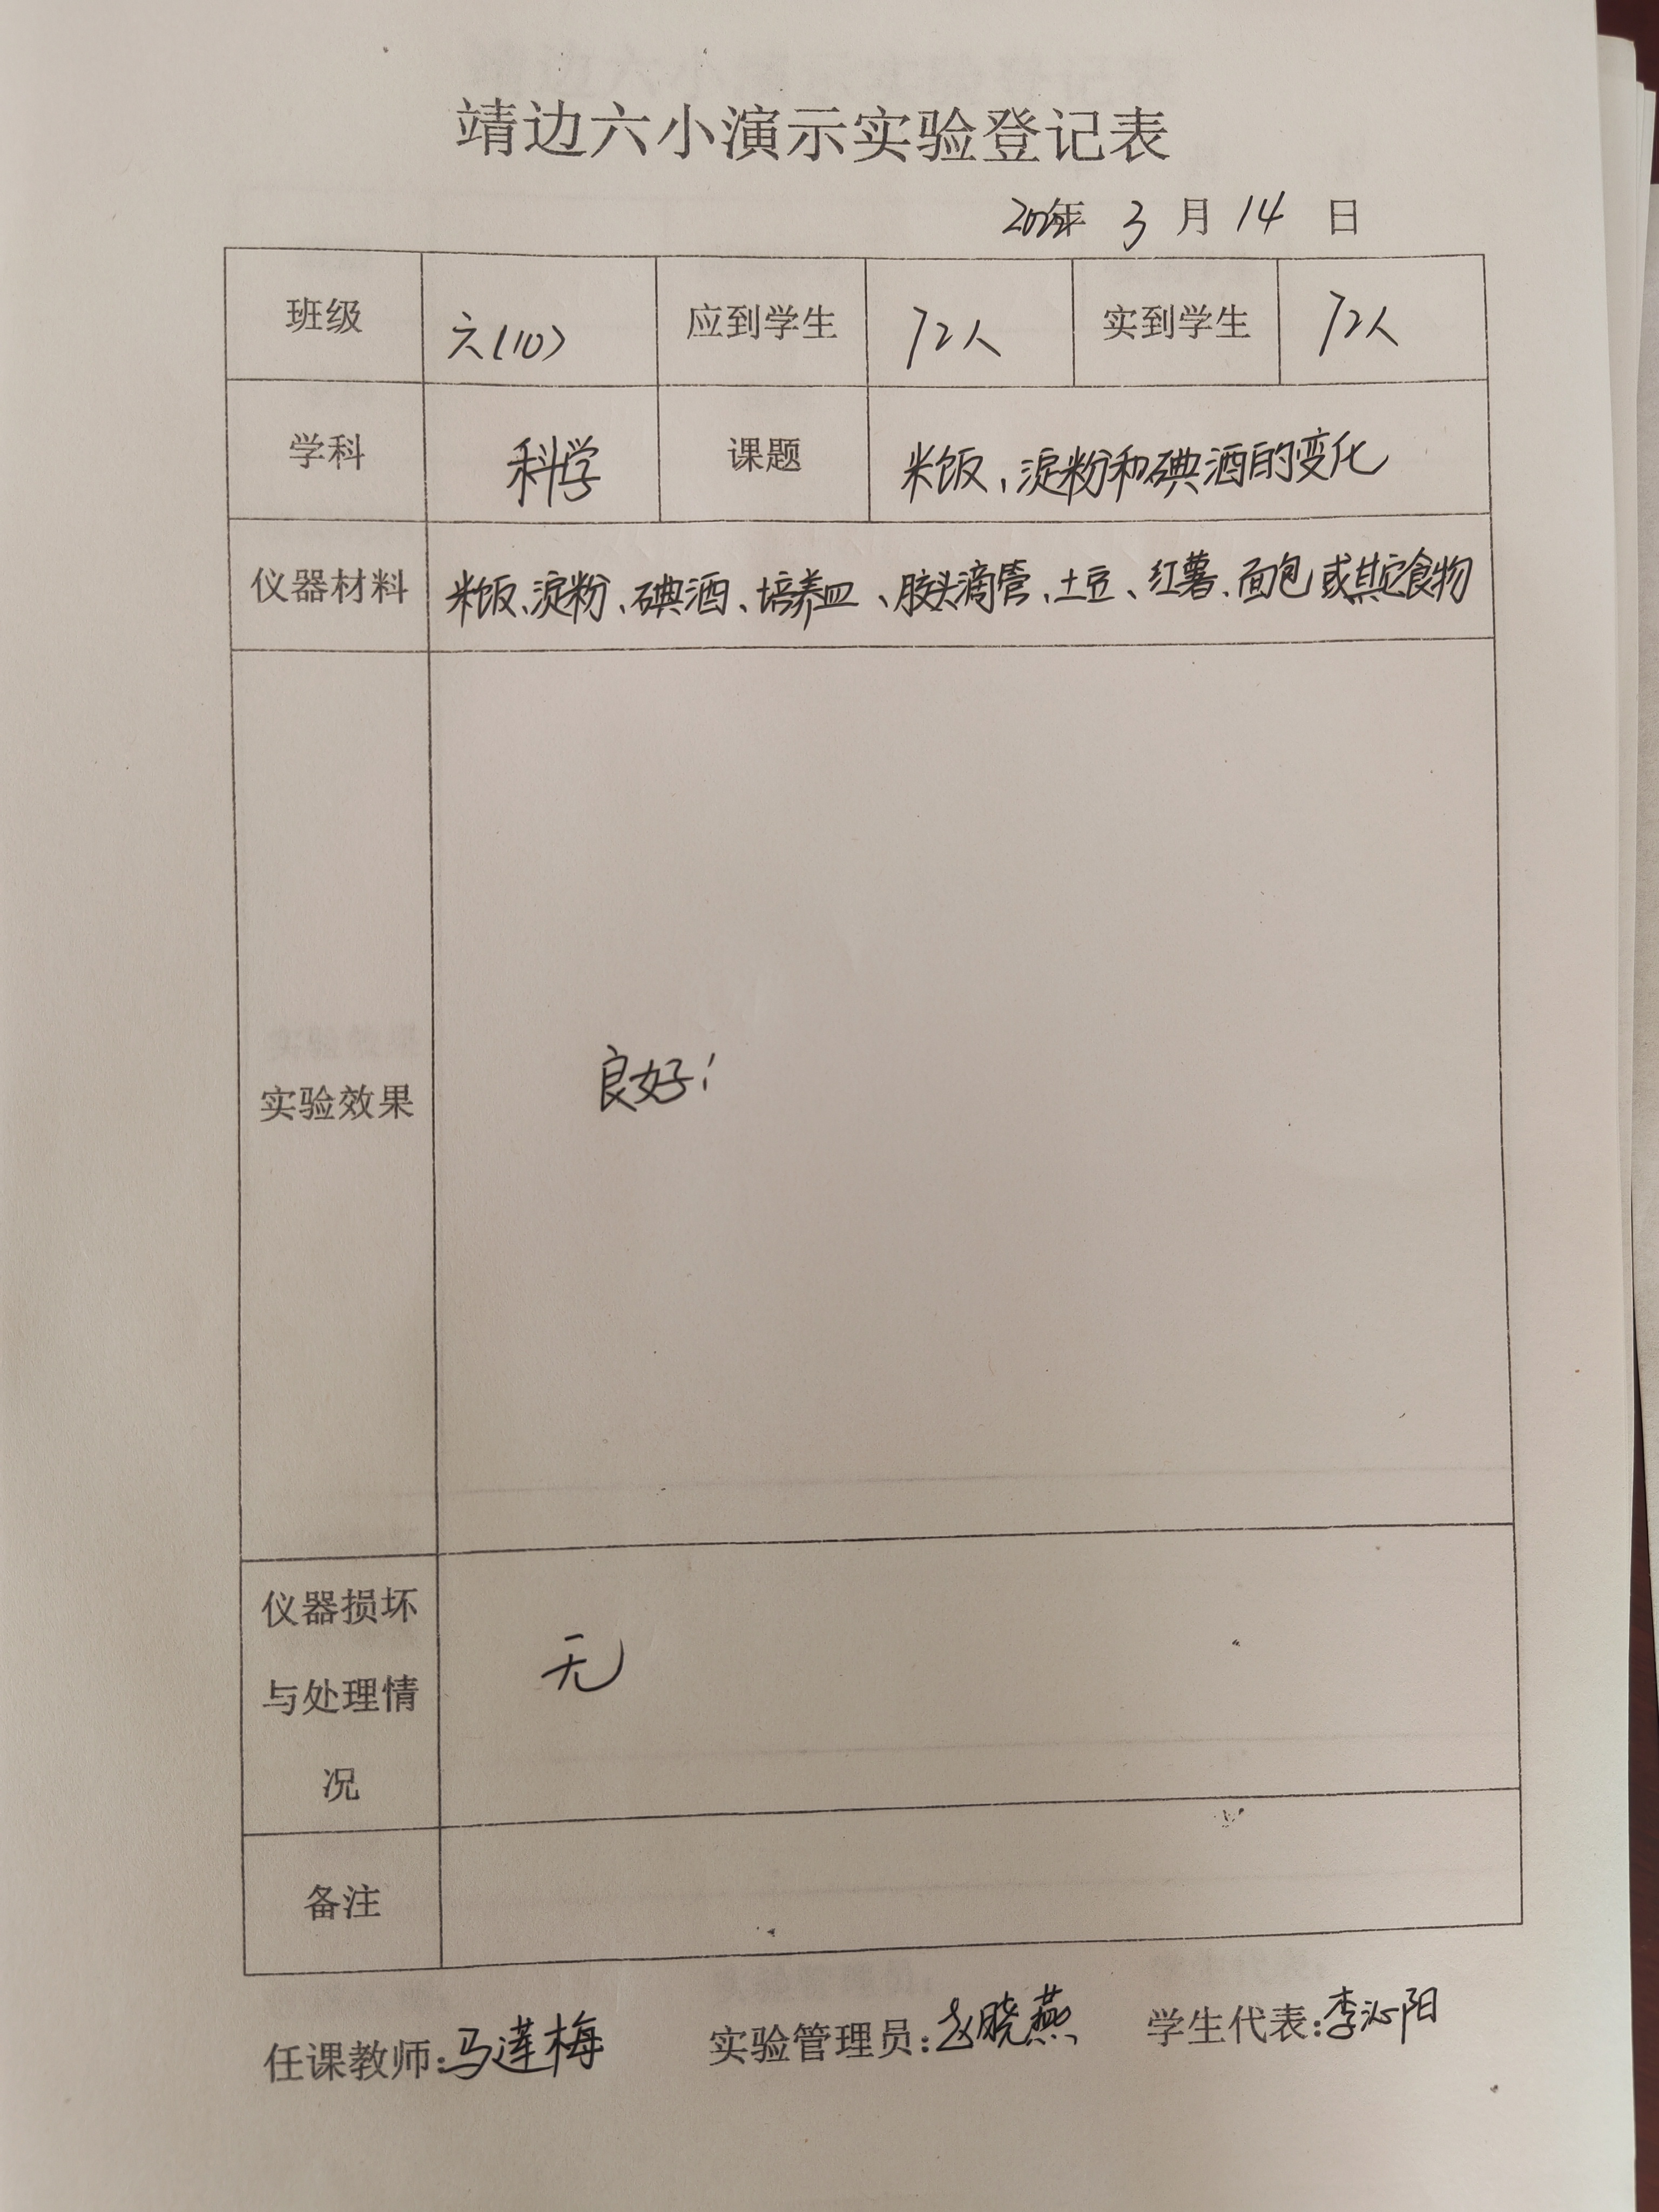 靖边六小演示实验登记表
年 3 月 14 日
班级 六(10) 应到学生 72人 实到学生 72人
学科 科学 课题 米饭、淀粉和碘酒的变化
仪器材料 米饭、淀粉、碘酒、培养皿、胶头滴管、土豆、红薯、面包或其它食物
实验效果 良好!
仪器损坏
与处理情
况
无
备注
任课教师:马莲梅 实验管理员:赵晓燕 学生代表:李沁阳